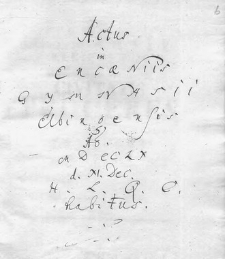 6
Actus
in
Encœniis
Gymnasii
Elbingensis
A6.
MDCCLX
d. XI. Dec.
H. L. Q. C.
habitus.